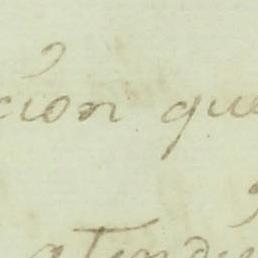 cion que
atendi